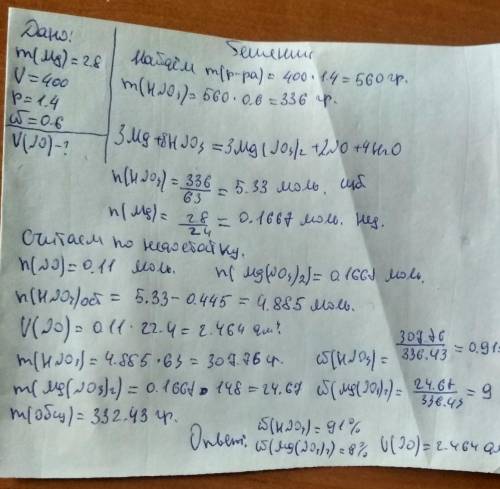 Дано:
m(Mg)=2.8
V=400
p=1.4
ω=0.6
V(NO)-?
Решение
Найдём m(р-ра)=400·1.4=560 гр.
m(HNO₃)=560·0.6=336 гр.
3Mg+8HNO₃=3Mg(NO₃)₂+2NO+4H₂O
n(HNO₃)=336/63=5.33 моль. изб
n(Mg)=28/24=0.1667 моль. нед.
Считаем по недостатку.
n(NO)=0.11 моль. n(Mg(NO₃)₂)=0.1667 моль.
n(HNO₃)ост=5.33-0.445=4.885 моль.
V(NO)=0.11·22.4=2.464 дм³
m(HNO₃)=4.885·63=307.76 гр. ω(HNO₃)=307.76/336.43=0.91
m(Mg(NO₃)₂)=0.1667·148=24.67 ω(Mg(NO₃)₂)=24.67/336.43=9
m(общ)=332.43 гр.
Ответ: ω(HNO₃)=91% V(NO)=2.464 д
ω(Mg(NO₃)₂)=8%